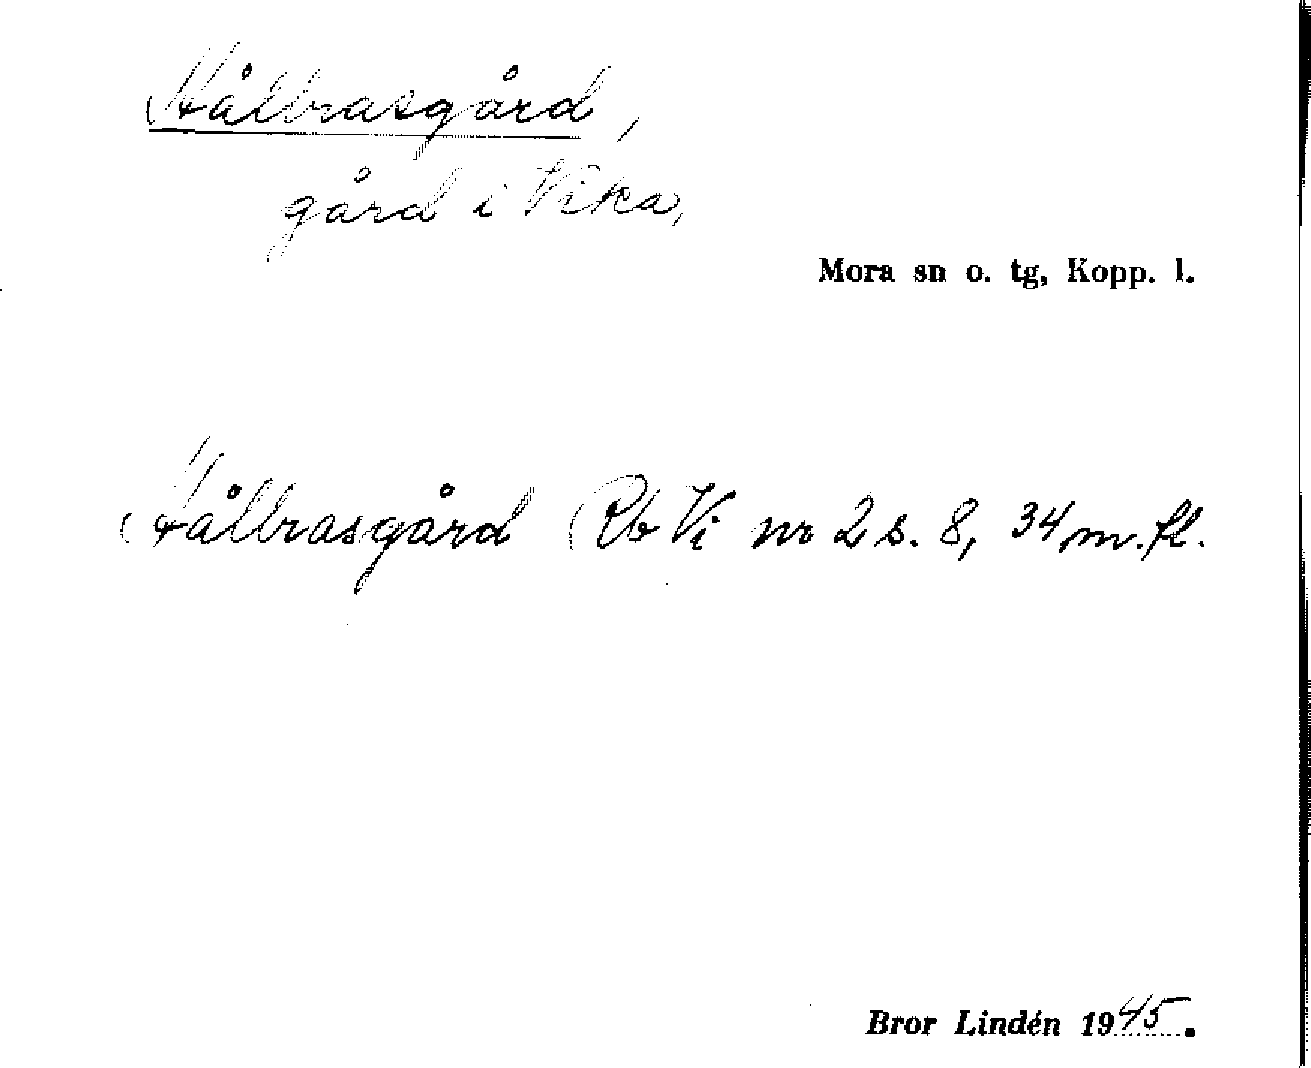 Hålbrasgård,
gård i Vika,
Mora sn o. tg, Kopp. l.
Hålbrasgård Rb Vi nr 2 s. 8, 34, m. fl.
Bror Lindén 1945.